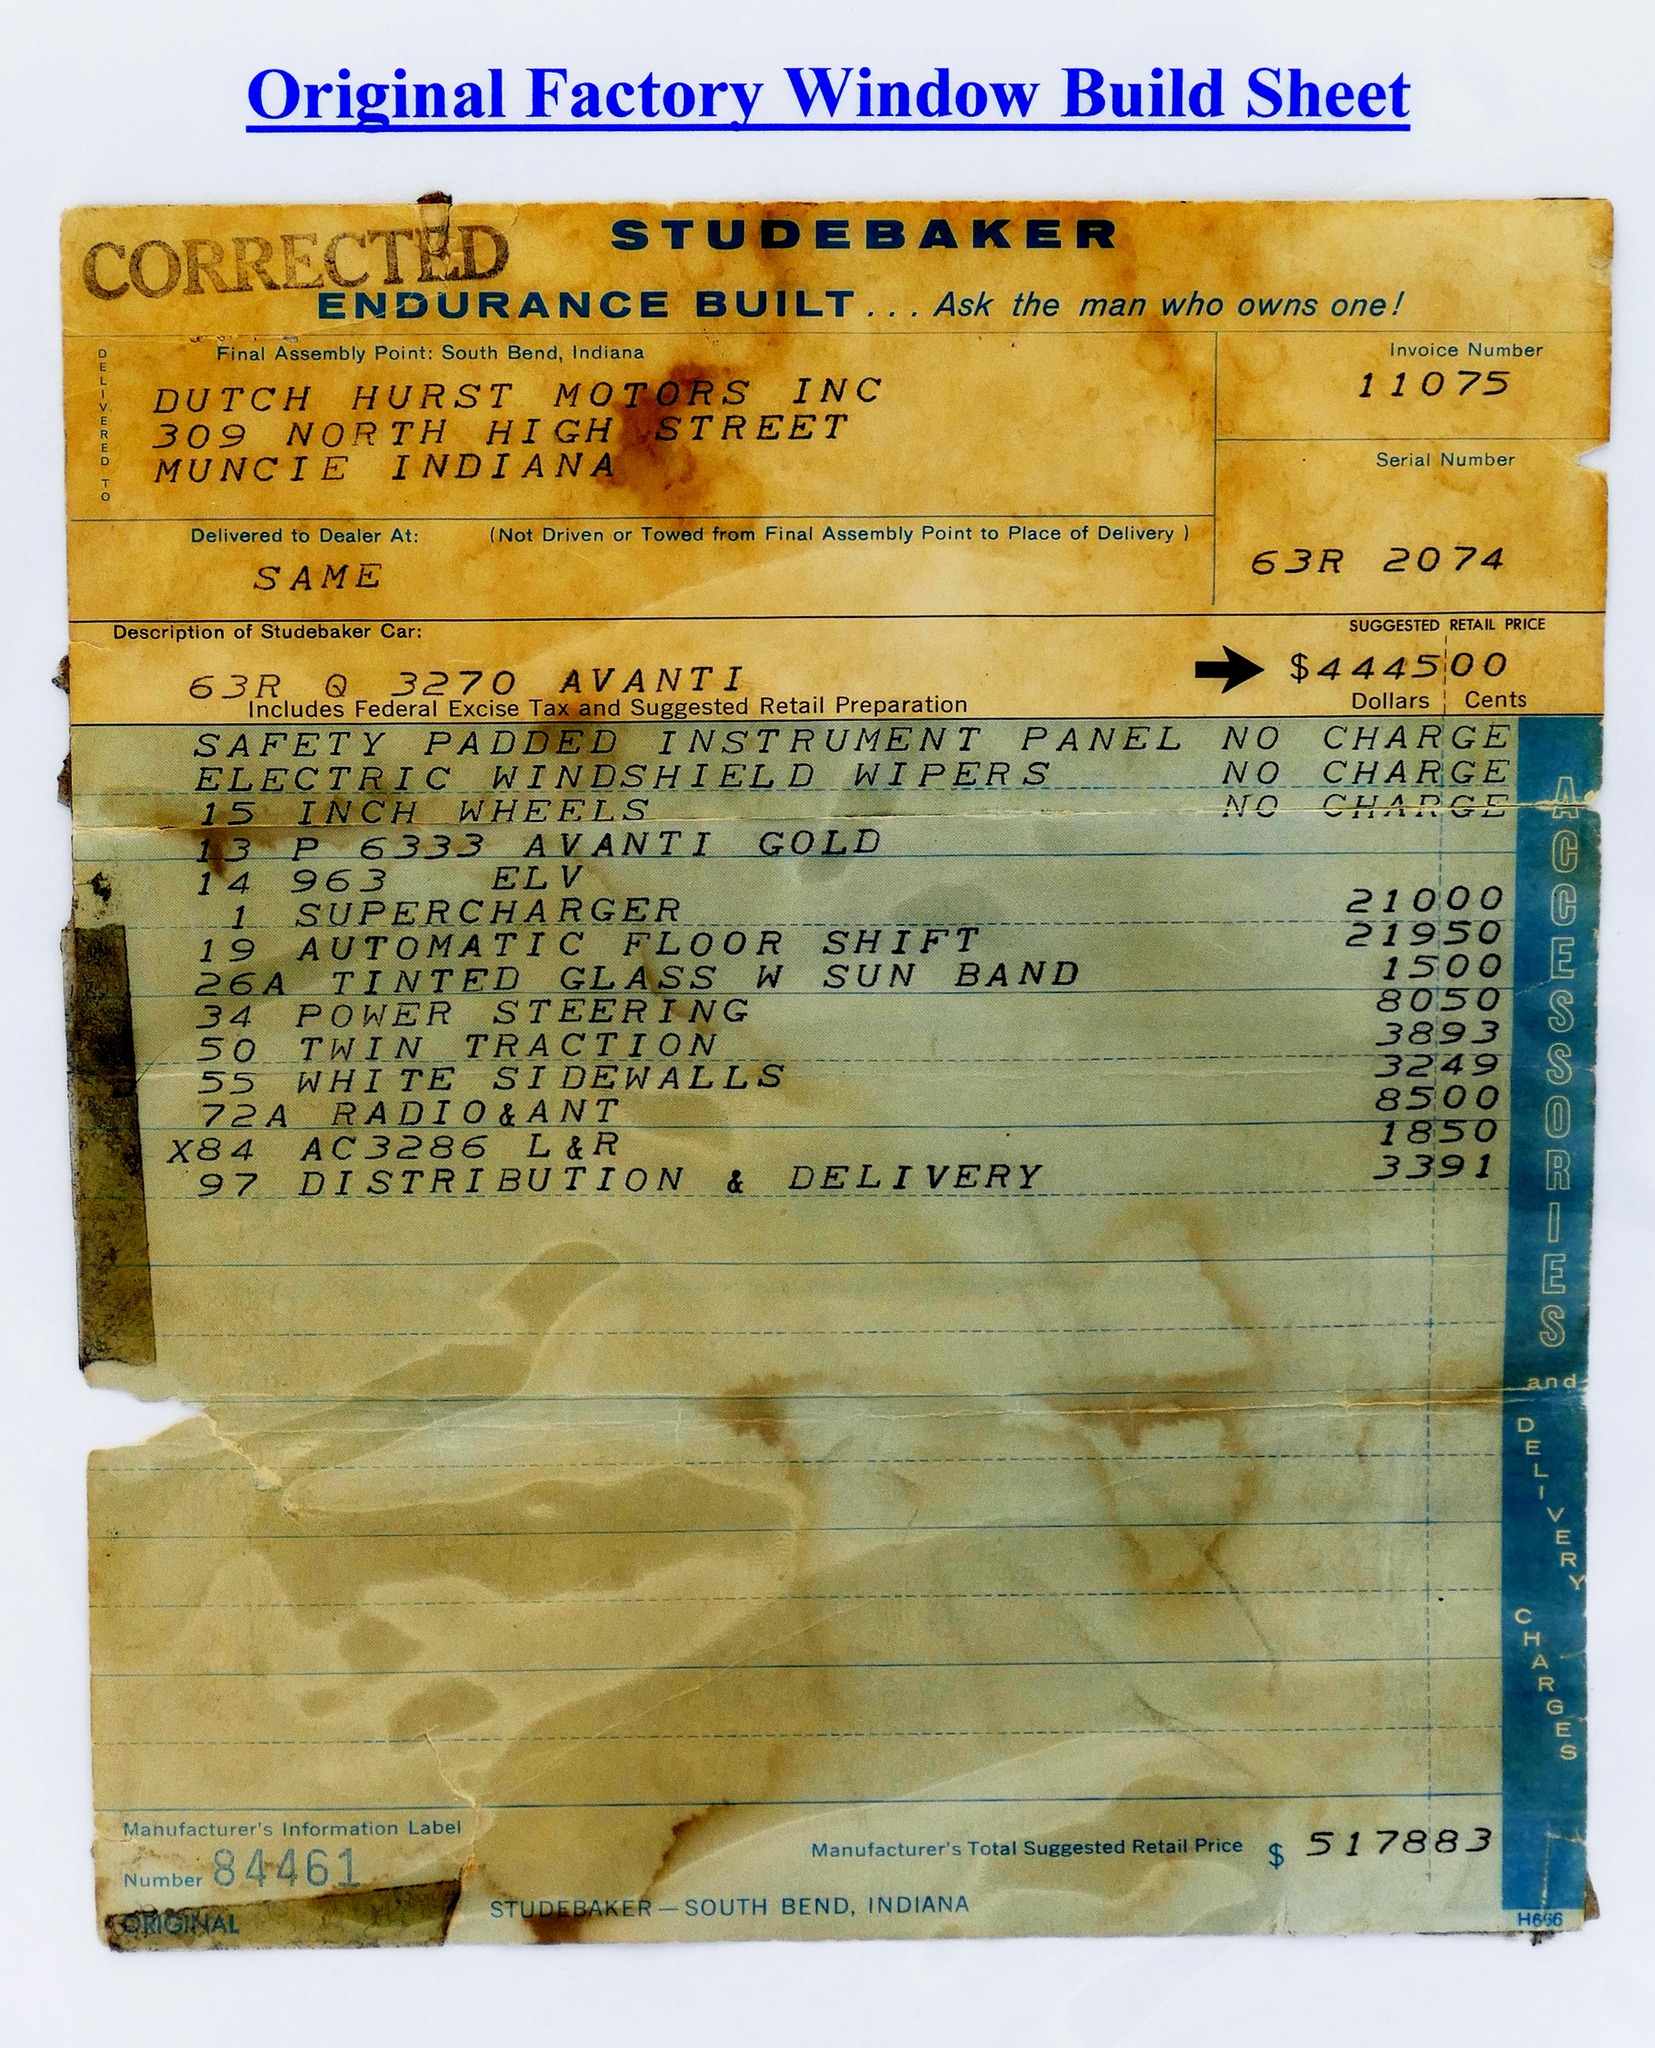 Original Factory Window Build Sheet
CORRECTED
STUDEBAKER
ENDURANCE BUILT . . . Ask the man who owns one!
DELIVERED TO
Final Assembly Point: South Bend, Indiana
DUTCH HURST MOTORS INC
309 NORTH HIGH STREET
MUNCIE INDIANA
Invoice Number
11075
Serial Number
63R 2074
Delivered to Dealer At: (Not Driven or Towed from Final Assembly Point to Place of Delivery )
SAME
Description of Studebaker Car:
SUGGESTED RETAIL PRICE
63R Q 3270 AVANTI
$444500
Includes Federal Excise Tax and Suggested Retail Preparation
Dollars Cents
SAFETY PADDED INSTRUMENT PANEL NO CHARGE
ELECTRIC WINDSHIELD WIPERS NO CHARGE
15 INCH WHEELS NO CHARGE
13 P 6333 AVANTI GOLD
14 963 ELV
1 SUPERCHARGER 21000
19 AUTOMATIC FLOOR SHIFT 21950
26A TINTED GLASS W SUN BAND 1500
34 POWER STEERING 8050
50 TWIN TRACTION 3893
55 WHITE SIDEWALLS 3249
72A RADIO&ANT 8500
X84 AC3286 L&R 1850
97 DISTRIBUTION & DELIVERY 3391
ACCESSORIES
and
DELIVERY
CHARGES
Manufacturer's Information Label
Number 84461
Manufacturer's Total Suggested Retail Price $ 517883
ORIGINAL
STUDEBAKER—SOUTH BEND, INDIANA
H666